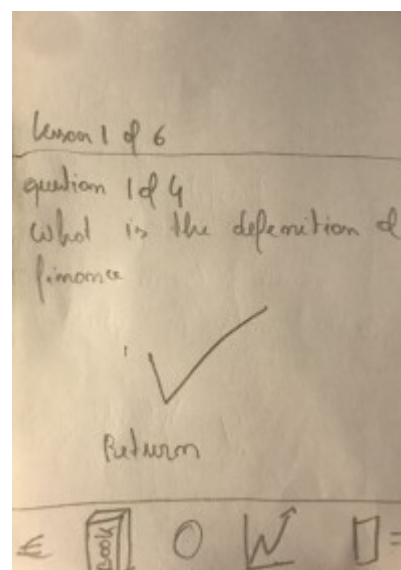 lesson 1 of 6
question 1 of 4
What is the defenition of
finance
Return
€
BOOK